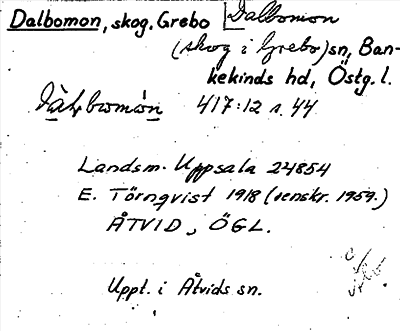 Dalbomon, skog, Grebo [Dalbomon
(skog i Grebo) sn, Ban-
kekinds hd, Östg. l.
417:12 s. 44
Landsm. Uppsala 24854
E. Törnqvist 1918 (renskr. 1959.)
ÅTVID, ÖGL.
Uppt. i Åtvids sn.